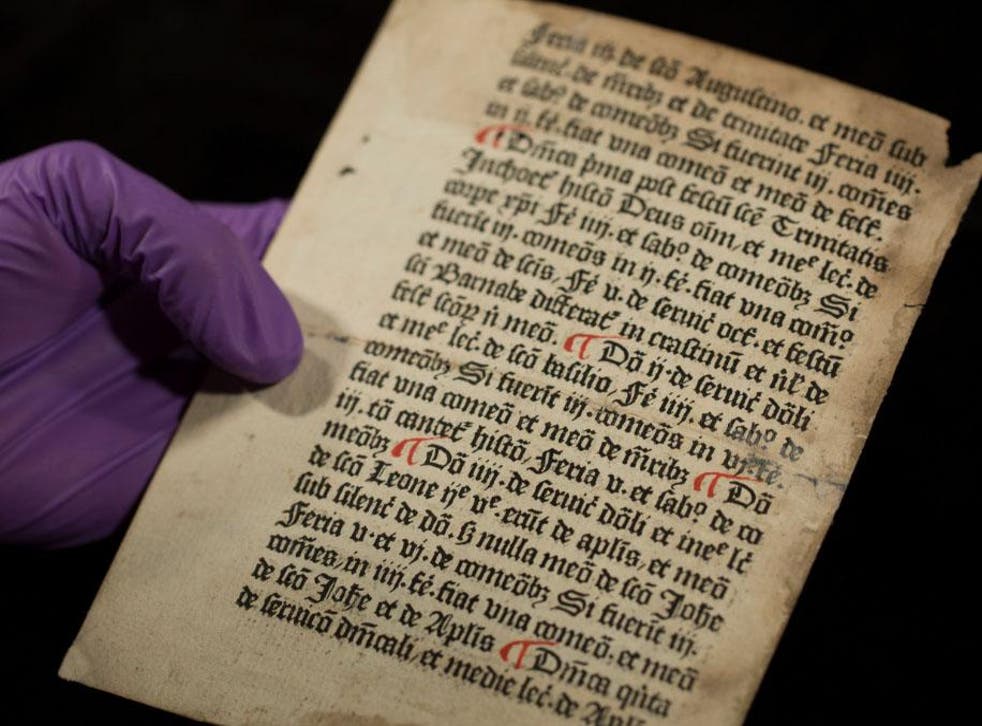 Feria iij de scō Augustino. et meō sub
silenč. de m̄ribȝ et de trinitate Feria iiij.
et sabº. de comeōbȝ Si fuerint iij. com̄es
in ij. fé. fiat vna comeō et meō de fest̄.
¶ Dm̄ca pm̄a post festū scē Trinitatis
Inchoet̄ histō Deus om̄. et meᵉ lec̄. de
corpe xp̄i Fé iiij. et sabº. de comeōbȝ Si
fuerīt iij. comeōs in ij. fé. fiat vna com̄º
et meō de scīs, Fé v. de seruic̄ oct̄. et festū
sci Barnabe differat̄ in crastinū et nl̄r de
fest̄ scōꝝ n̄ meō. ¶ Dō ij. de seruic̄ dōli
et meᵉ lec̄. de scō basilio, Fé iiij. et sabº. de
comeōbȝ Si fuerīt iij. comeōs in vj. fé.
fiat vna comeō et meō de m̄ribȝ ¶ Dō
iij. tō cantet̄ histō, Feria v. et sabº. de co
meōbȝ ¶ Dō iiij. de seruic̄ dōli et meᵉ lc̄
de scō Leone ijᵉ vᵉ. erūt de aplīs, et meō
sub silenc̄ de dō. sȝ nulla meō de scō Johe
Feria v. et vj. de comeōbȝ Si fuerīt iij.
com̄es, in iiij. fé. fiat vna comeō. et meō
de scō Johe et de Aplīs ¶ Dm̄ca qn̄ta
de seruicō dm̄cali, et medie lec̄. de Apl